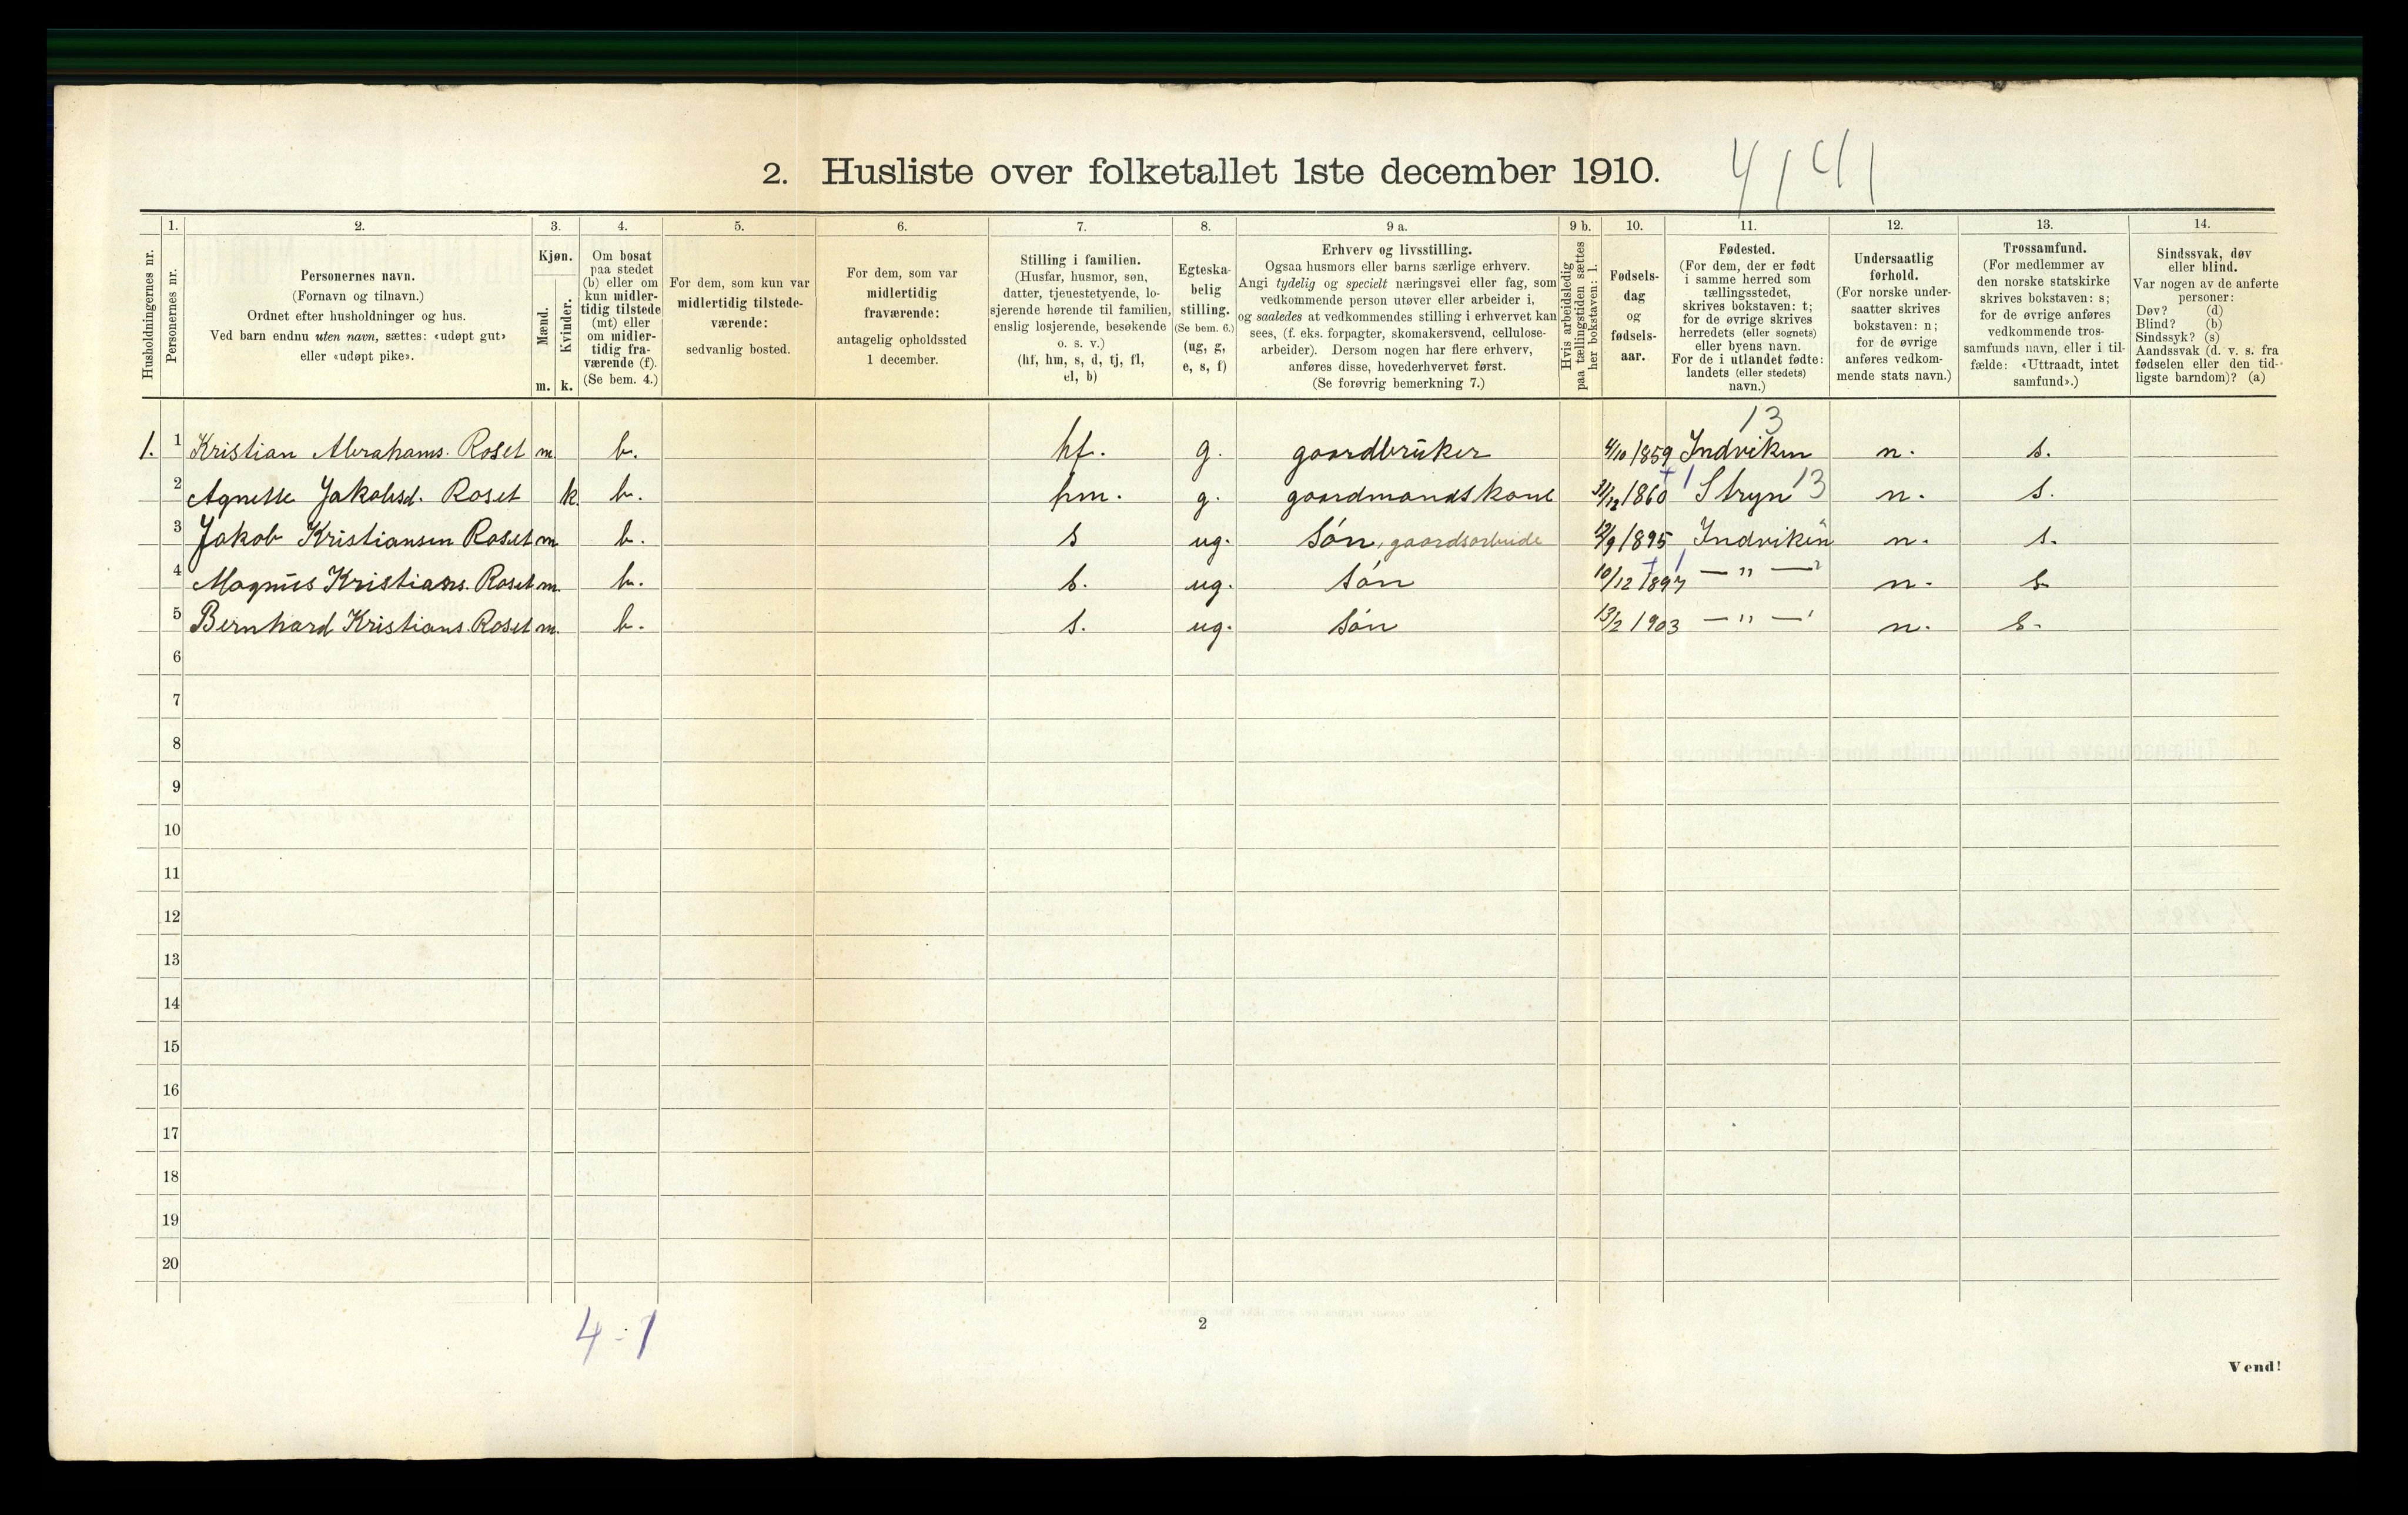 2. Husliste over folketallet 1ste december 1910.
4/4/
Husholdningernes nr.
1.
Personernes nr.
2.
Personernes navn.
(Fornavn og tilnavn.)
Ordnet efter husholdninger og hus.
Ved barn endnu uten navn, sættes: «udøpt gut»
eller «udøpt pike».
3.
Kjøn.
Mænd.
Kvinder.
m. k.
4.
Om bosat
paa stedet
(b) eller om
kun midler-
tidig tilstede
(mt) eller
om midler-
tidig fra-
værende (f).
(Se bem. 4.)
5.
For dem, som kun var
midlertidig tilstede-
værende:
sedvanlig bosted.
6.
For dem, som var
midlertidig
fraværende:
antagelig opholdssted
1 december.
7.
Stilling i familien.
(Husfar, husmor, søn,
datter, tjenestetyende, lo-
sjerende hørende til familien,
enslig losjerende, besøkende
o. s. v.)
(hf, hm, s, d, tj, fl,
el, b)
8.
Egteska-
belig
stilling.
(Se bem. 6.)
(ug, g,
e, s, f)
9 a.
Erhverv og livsstilling.
Ogsaa husmors eller barns særlige erhverv.
Angi tydelig og specielt næringsvei eller fag, som
vedkommende person utøver eller arbeider i,
og saaledes at vedkommendes stilling i erhvervet kan
sees, (f. eks. forpagter, skomakersvend, cellulose-
arbeider). Dersom nogen har flere erhverv,
anføres disse, hovederhvervet først.
(Se forøvrig bemerkning 7.)
9 b.
Hvis arbeidsledig
paa tællingstiden sættes
her bokstaven: l.
10.
Fødsels-
dag
og
fødsels-
aar.
11.
Fødested.
(For dem, der er født
i samme herred som
tællingsstedet,
skrives bokstaven: t;
for de øvrige skrives
herredets (eller sognets)
eller byens navn.
For de i utlandet fødte:
landets (eller stedets)
navn.)
12.
Undersaatlig
forhold.
(For norske under-
saatter skrives
bokstaven: n;
for de øvrige
anføres vedkom-
mende stats navn.)
13.
Trossamfund.
(For medlemmer av
den norske statskirke
skrives bokstaven: s;
for de øvrige anføres
vedkommende tros-
samfunds navn, eller i til-
fælde: «Uttraadt, intet
samfund».)
14.
Sindssvak, døv
eller blind.
Var nogen av de anførte
personer:
Døv? (d)
Blind? (b)
Sindssyk? (s)
Aandssvak (d. v. s. fra
fødselen eller den tid-
ligste barndom)? (a)
13
1. 1 Kristian Abrahams. Roset m. b. hf. g. gaardbruker 4/10 1859 Indviken n. s.
2 Agnette Jakobsd. Roset k. b. hm. g. gaardmandskone 31/12 1860 Stryn 13 n. s.
3 Jakob Kristiansen Roset m. b. s ug. søn, gaardsarbeide 12/9 1895 Indviken n. s.
4 Magnus Kristians. Roset m. b. s. ug. søn 10/12 1897 — " — n. s
5 Bernhard Kristians. Roset m. b. s. ug. søn 13/2 1903 — " — n. s.
6
7
8
9
10
11
12
13
14
15
16
17
18
19
20
4 - 1
2
Vend!